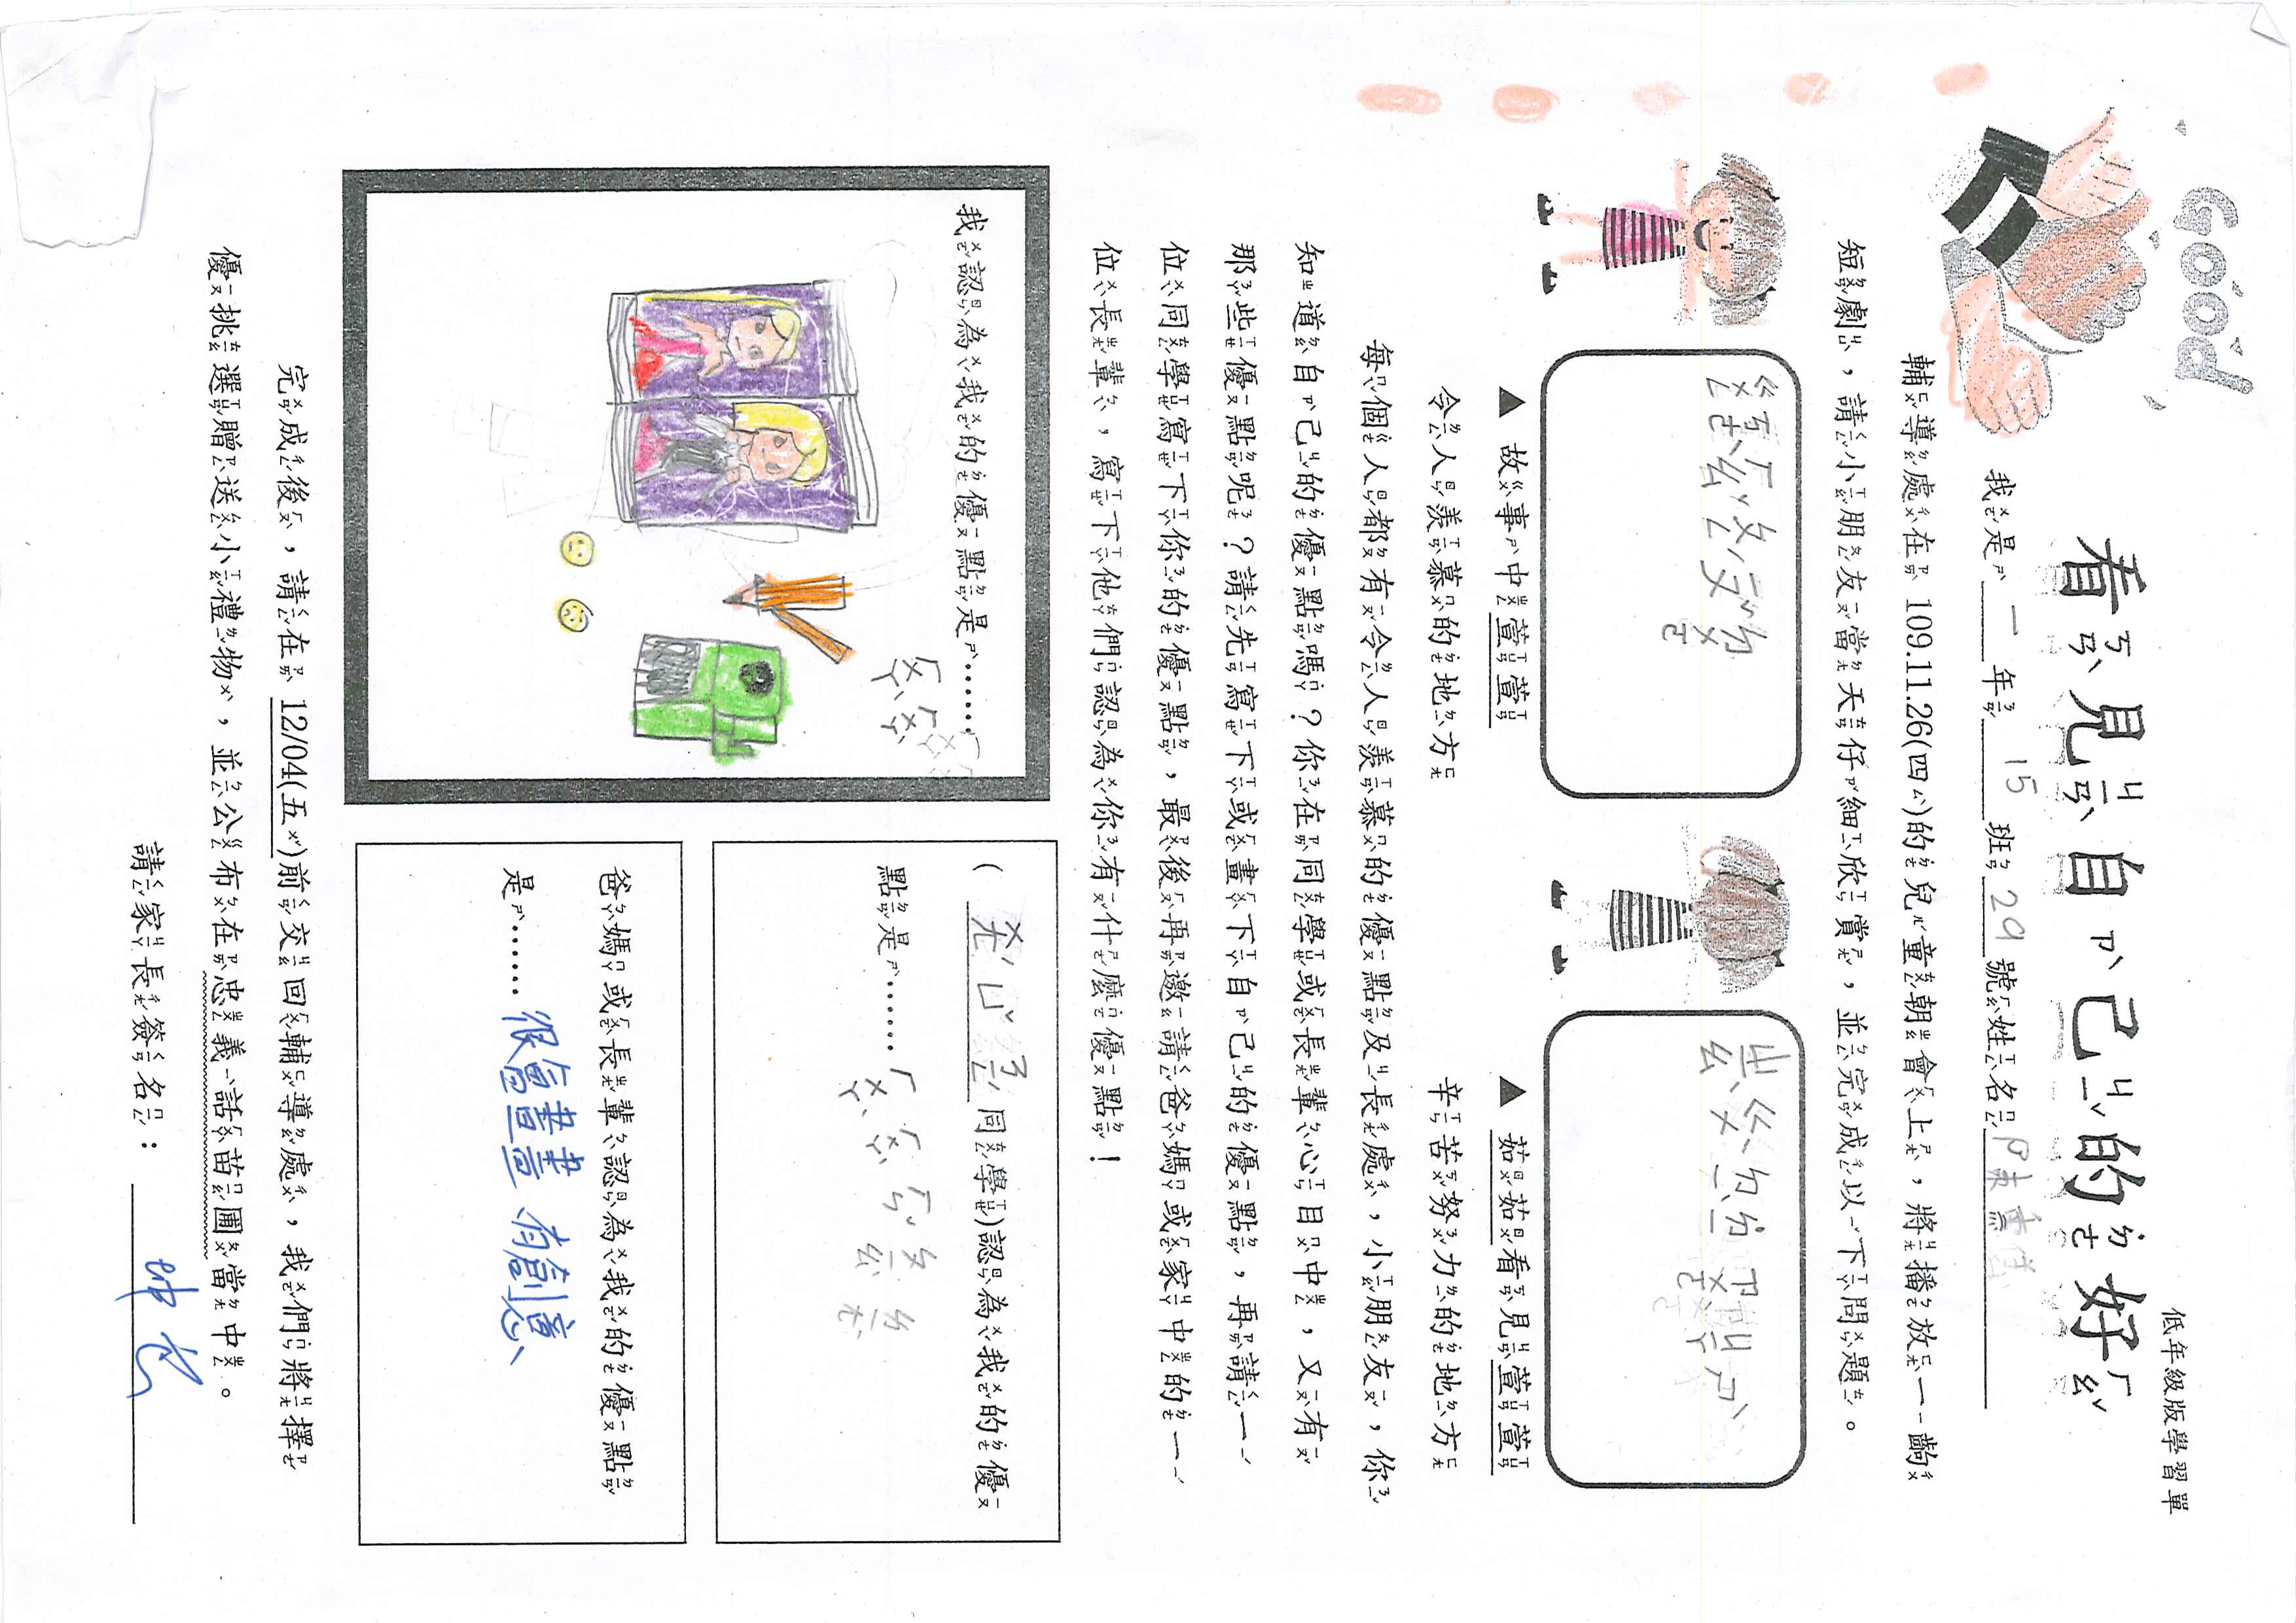 低年級版學習單
Good
看見自己的好
我是 一 年 15 班 29 號姓名 陳
輔導處在 109.11.26(四)的兒童朝會上，將播放一齣
短劇，請小朋友當天仔細欣賞，並完成以下問題。
▲ 故事中萱萱
令人羨慕的地方
▲ 茹茹看見萱萱
辛苦努力的地方
每個人都有令人羨慕的優點及長處，小朋友，你
知道自己的優點嗎？你在同學或長輩心目中，又有
那些優點呢？請先寫下或畫下自己的優點，再請一
位同學寫下你的優點，最後再邀請爸媽或家中的一
位長輩，寫下他們認為你有什麼優點！
我認為我的優點是……
ㄏㄨㄟˋ ㄏㄨㄚˋ
( 同學)認為我的優
點是……
爸媽或長輩認為我的優點
是…… 很會畫畫 有創意、
完成後，請在 12/04(五)前交回輔導處，我們將擇
優挑選贈送小禮物，並公布在忠義話苗圃當中。
請家長簽名：